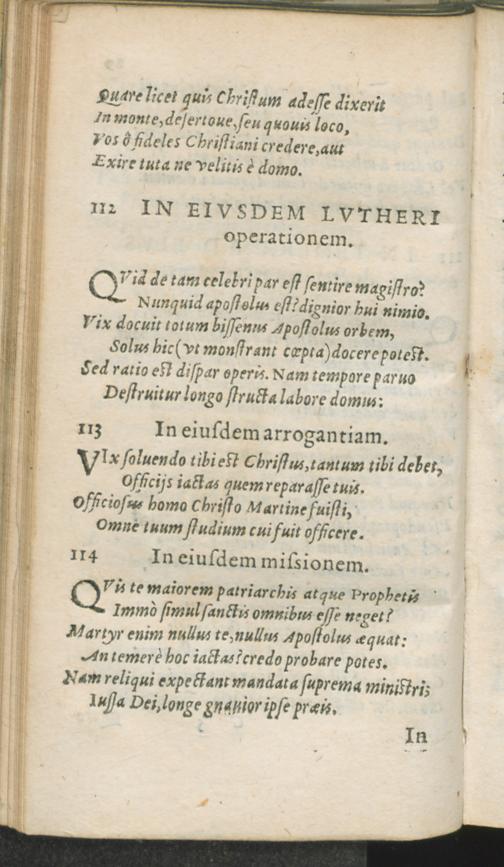 Quare licet quis Christum adesse dixerit
In monte, desertoue, seu quouis loco,
Vos ô fideles Christiani credere, aut
Exire tuta ne velitis è domo.
112 IN EIVSDEM LVTHERI
operationem.
QVid de tam celebri par est sentire magistro?
Nunquid apostolus est? dignior hui nimio.
Vix docuit totum bissenus Apostolus orbem,
Solus hic (vt monstrant cœpta) docere potest.
Sed ratio est dispar operis. Nam tempore paruo
Destruitur longo structa labore domus:
113 In eiusdem arrogantiam.
VIx soluendo tibi est Christus, tantum tibi debet,
Officijs iactas quem reparasse tuis.
Officiosus homo Christo Martine fuisti,
Omne tuum studium cui fuit officere.
114 In eiusdem missionem.
QVis te maiorem patriarchis atque Prophetis
Immò simul sanctis omnibus esse neget?
Martyr enim nullus te, nullus Apostolus æquat:
An temerè hoc iactas? credo probare potes.
Nam reliqui expectant mandata suprema ministri;
Iussa Dei, longe gnauior ipse præis.
In